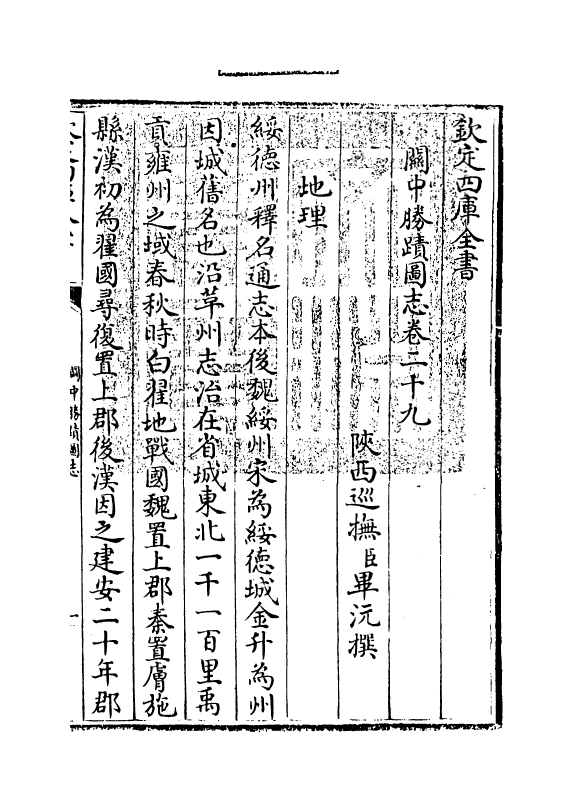 欽定四庫全書
關中勝蹟圖志卷二十九
陜西巡撫臣畢沅撰
地理
綏德州釋名通志本後魏綏州宋為綏德城金升為州
因城舊名也沿革州志治在省城東北一千一百里禹
貢雍州之域春秋時白翟地戰國魏置上郡秦置膚施
縣漢初為翟國尋復置上郡後漢因之建安二十年郡
關中勝蹟圖志
一